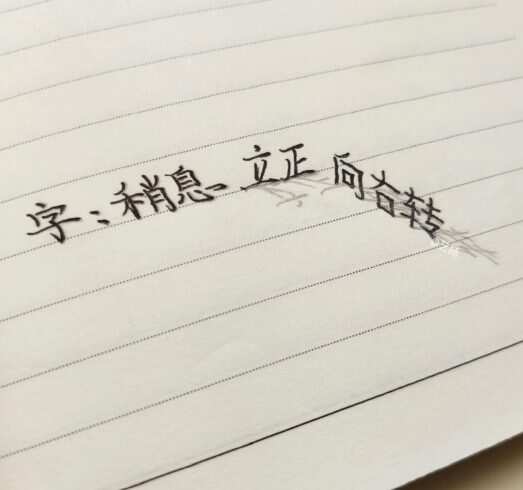 字：稍息 立正 向右转